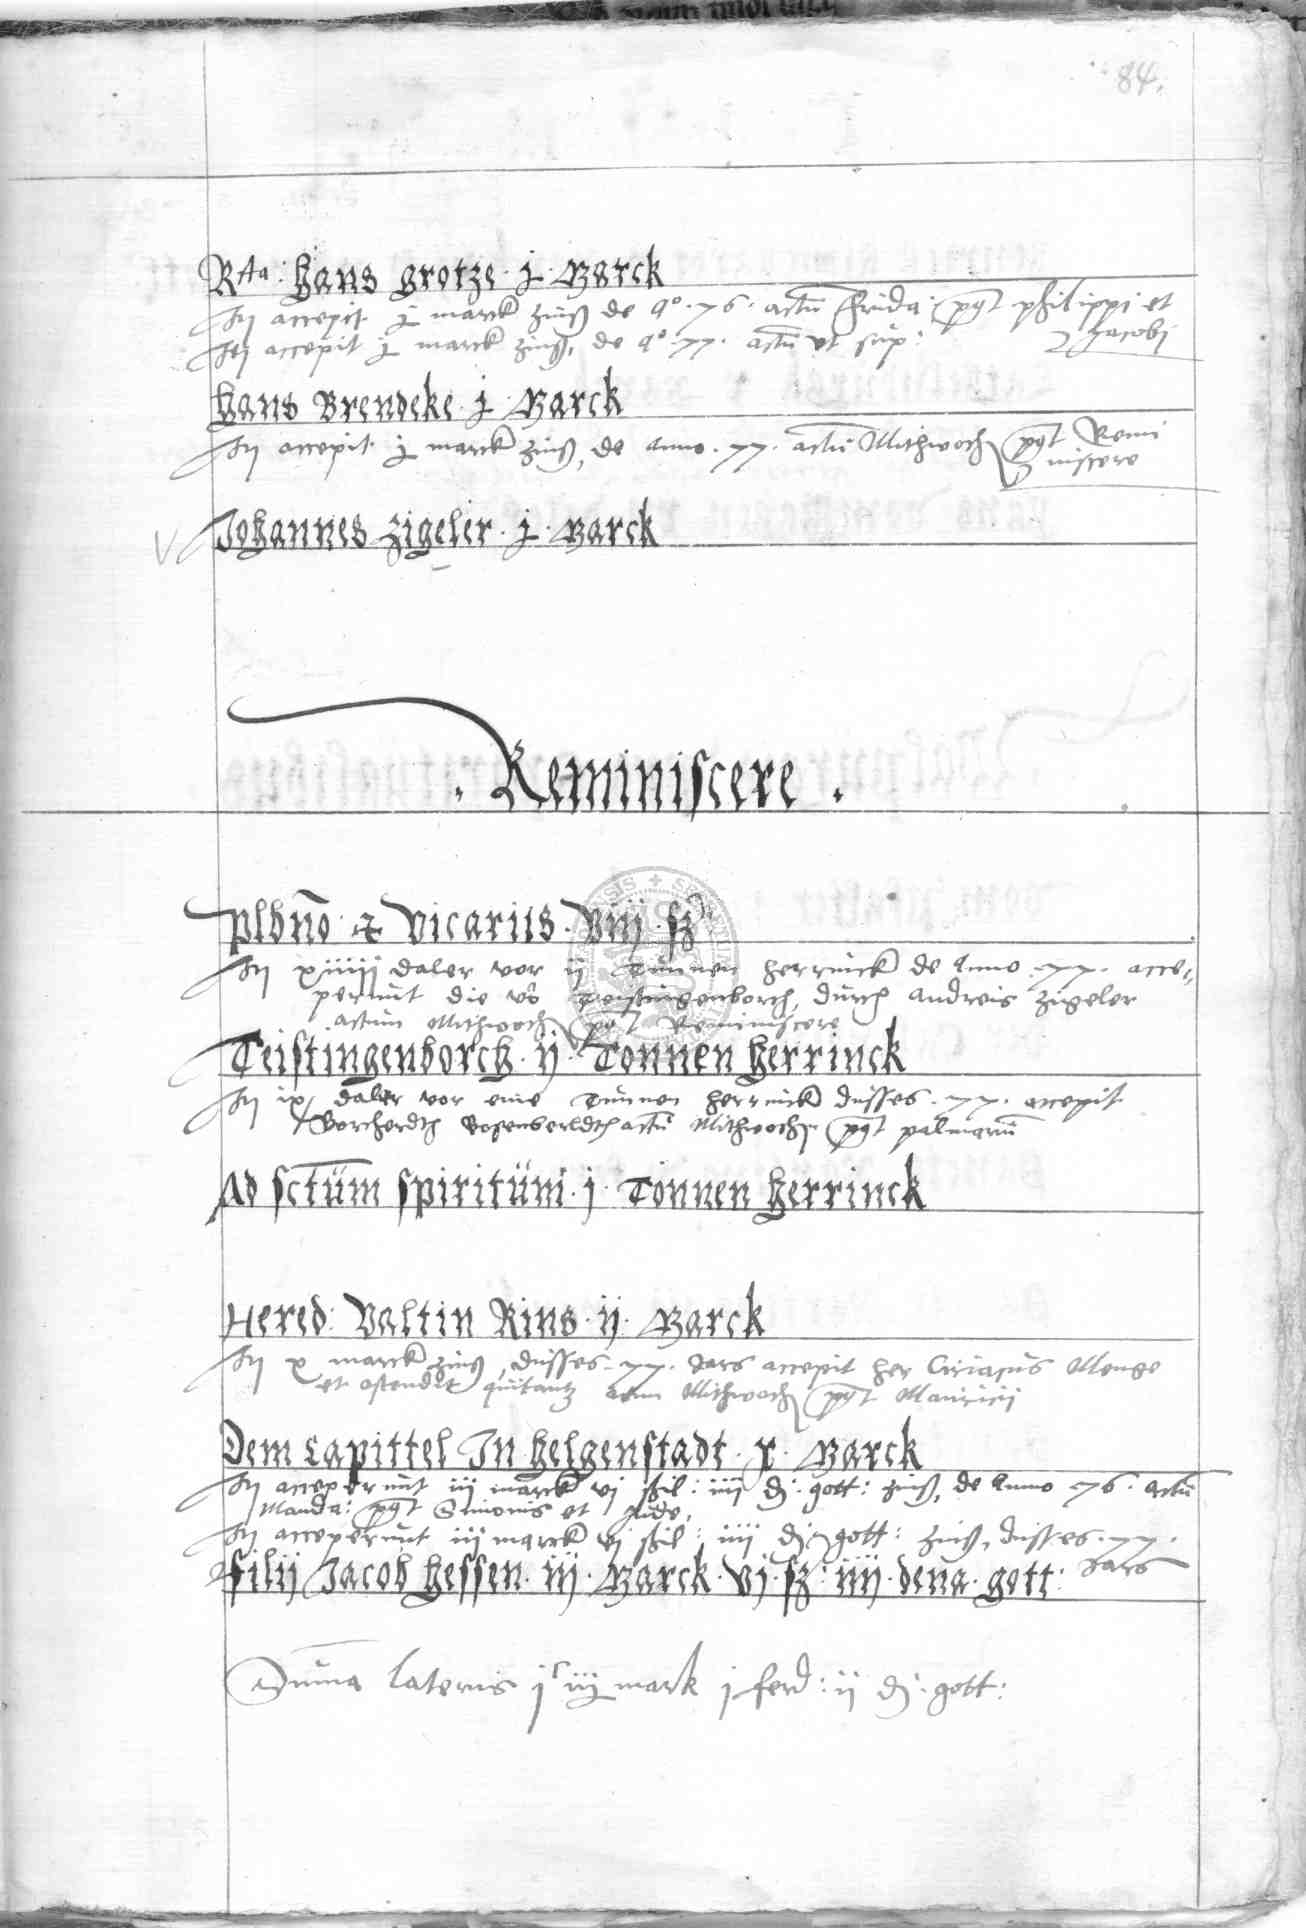 84.
Rta: Hans Grotze · j · Marck
Itē accepit j marck zinß de Aō · 76 · actū Frida: pꝰt philippi et Jacobi
Itē accepit j marck zinß, de Aō · 77 · actū ut sup:
Hans Brendeke · j · Marck
Itē accepit j marck zinß, de Anno · 77 · actū Mithwoch pꝰt Remi
niscere
Johannes Zigeler · j · Marck
· Reminiscere ·
plbno · et Vicariis · viij · ß
Itē daler vor ij Tunnen herrinck de Anno · 77 · acce„
perunt die vō Teistungenborch, durch Andreis Zigeler
actum Mithwoch pꝰt Reminiscere
Teistingenborch · ij · Tonnen Herrinck
Itē ix daler vor eine Tunnen herrinck dusses · 77 · accepit
Borcherdth actū Mithwoch pꝰt palmarū
Ad sctūm spiritūm · j · Tonnen Herrinck
Hered: Valtin Rins · ij · Marck
Itē x marck zinß, dusses · 77 · Jars accepit her Ciriacus Menge
et ostendit quitantz Mithwoch pꝰt Mauricij
Dem Capittel In Helgenstadt · x · Marck
Itē acceperunt iij marck vj ßil: iiij d: gott: zinß, de Anno 76 · actū
Manda: pꝰt Simonis et Jude,
Itē acceperunt iij marck vj ßil: iiij d gott: zinß, dusses · 77 ·
Jars
filij Jacob Hessen · iij · Marck · vj · ß: iiij · dena · gott:
Suma lateris mark j ferd: ij d: gott: